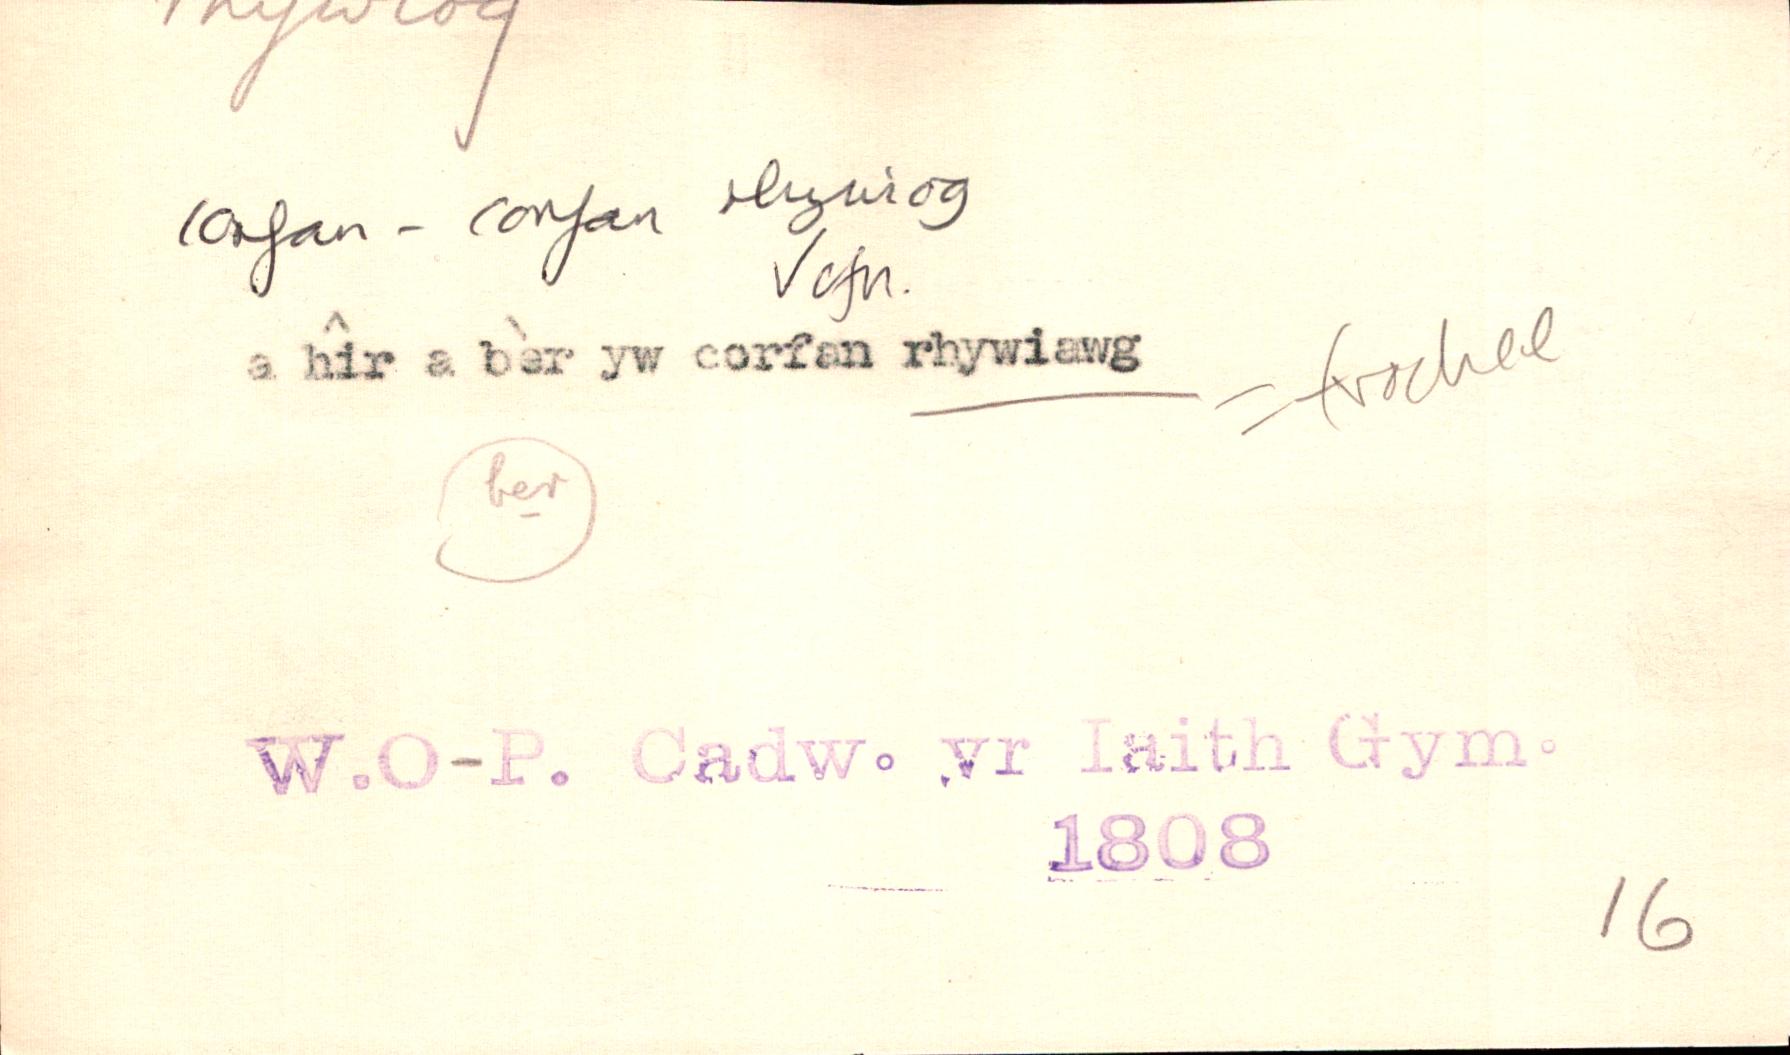 rhywiog
corfan - corfan rhywiog
√cfn.
a hîr a bèr yw corfan rhywiawg = trochee
ber
W.O-P. Cadw. yr Iaith Gym.
1808
16